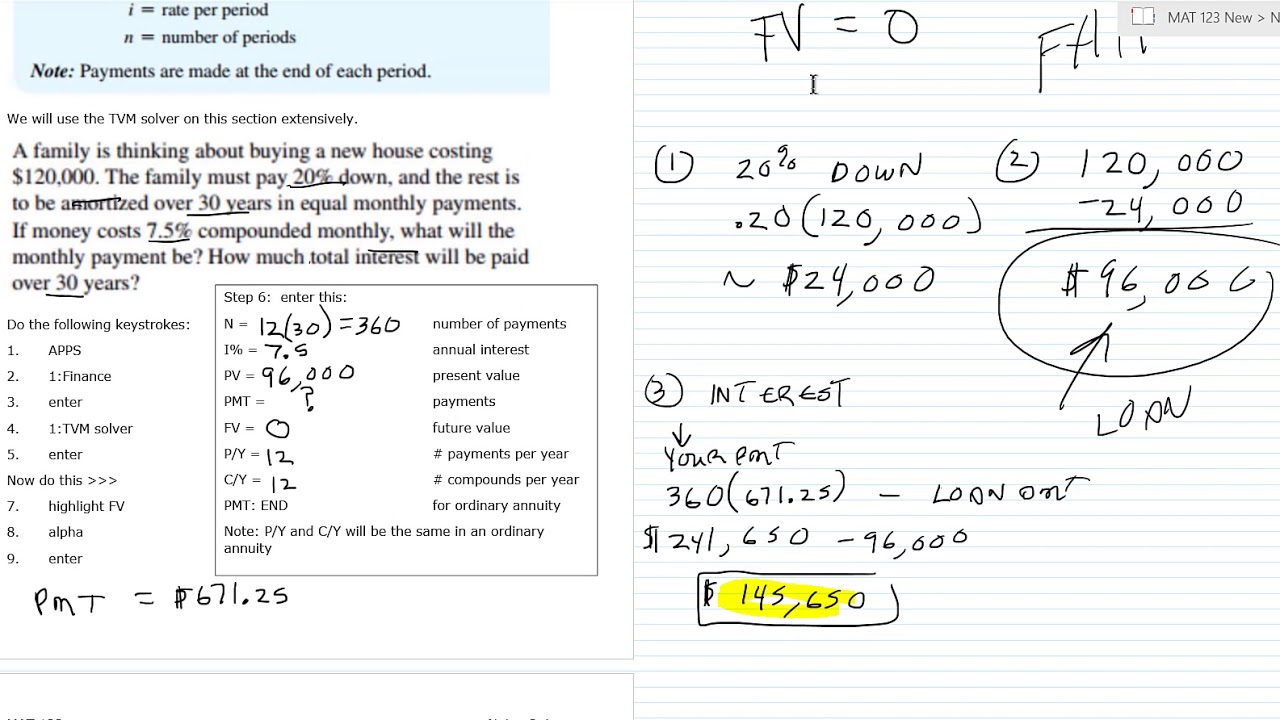 i = rate per period
n = number of periods
Note: Payments are made at the end of each period.
We will use the TVM solver on this section extensively.
A family is thinking about buying a new house costing
$120,000. The family must pay 20% down, and the rest is
to be amortized over 30 years in equal monthly payments.
If money costs 7.5% compounded monthly, what will the
monthly payment be? How much total interest will be paid
over 30 years?
Do the following keystrokes:
1. APPS
2. 1:Finance
3. enter
4. 1:TVM solver
5. enter
Now do this >>>
7. highlight FV
8. alpha
9. enter
Step 6: enter this:
N = 12(30) = 360 number of payments
I% = 7.5 annual interest
PV = 96,000 present value
PMT = ? payments
FV = 0 future value
P/Y = 12 # payments per year
C/Y = 12 # compounds per year
PMT: END for ordinary annuity
Note: P/Y and C/Y will be the same in an ordinary
annuity
PMT = $671.25
MAT 123 New > N
FV = 0
① 20% DOWN
.20(120,000)
~ $24,000
② 120,000
-24,000
$96,000
LOAN
③ INTEREST
↓
YOUR PMT
360(671.25) - LOAN AMT
$241,650 - 96,000
$145,650